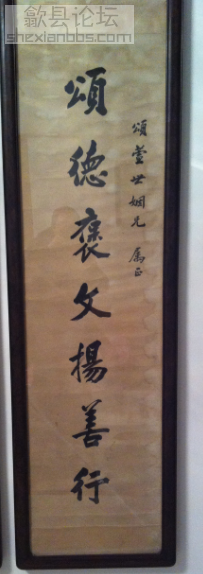 歙县论坛
shexianbbs.com
頌萱世姻兄 屬正
頌德褒文揚善行